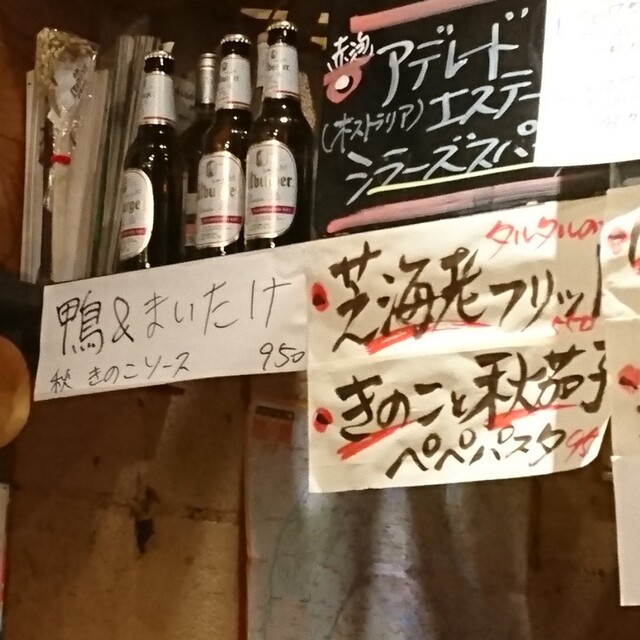 赤泡
アデレード
(オーストラリア) エステー
シラーズスパ
鴨&まいたけ
秋 きのこソース 950
タルタルの
芝海老フリット
きのこと秋茄子
ペペパスタ 95